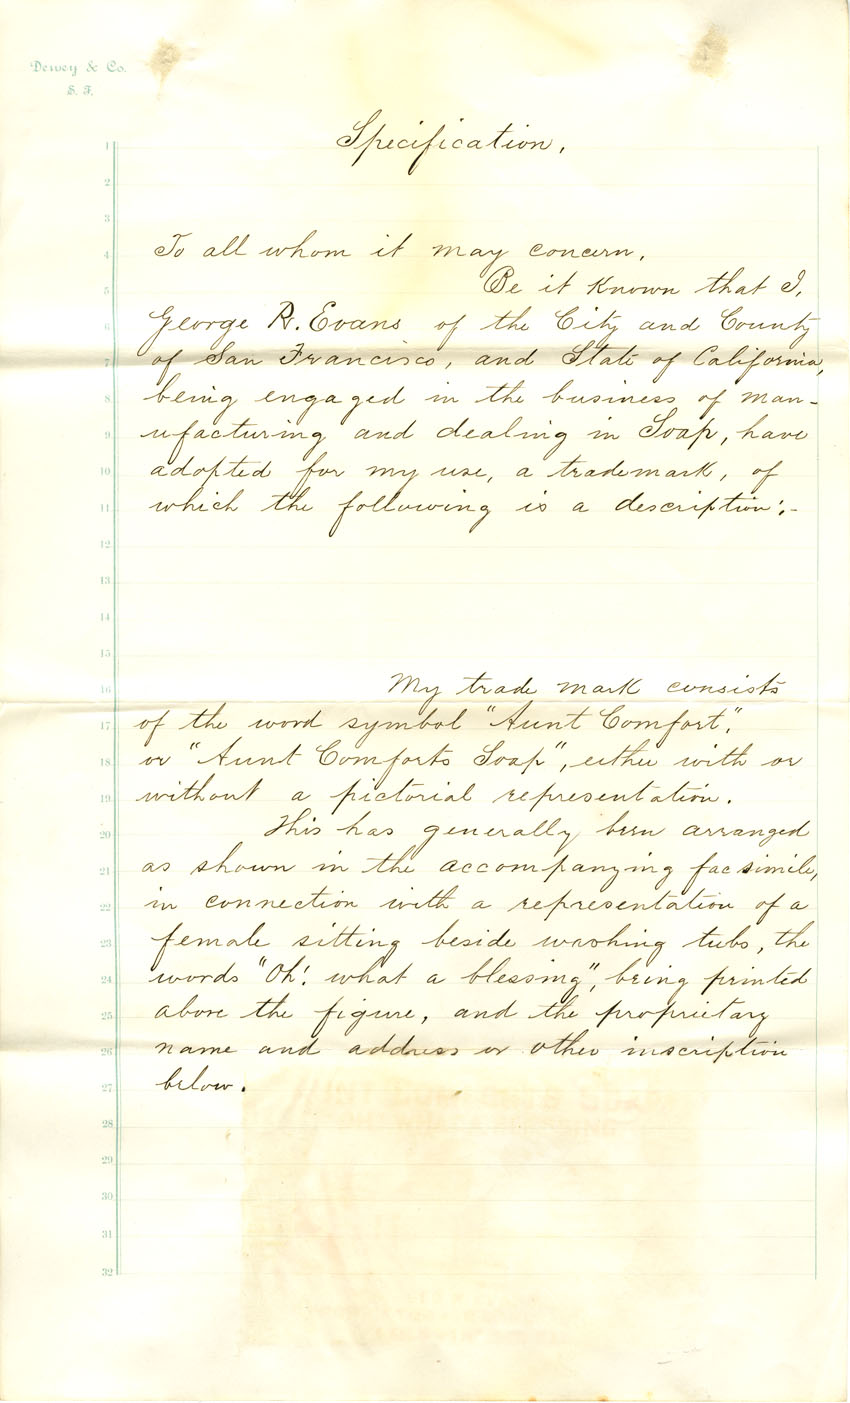 Dewey & Co.
S. F.
Specification.
To all whom it may concern,
Be it Known that I,
George R. Evans of the City and County
of San Francisco, and State of California,
being engaged in the business of man-
ufacturing and dealing in Soap, have
adopted for my use, a trademark, of
which the following is a description:-
My trade mark consists
of the word symbol "Aunt Comfort",
or "Aunt Comforts Soap", either with or
without a pictorial representation.
This has generally been arranged
as shown in the accompanying facsimile,
in connection with a representation of a
female sitting beside washing tubs, the
words "Oh! what a blessing", being printed
above the figure, and the proprietary
name and address or other inscription
below.
1
2
3
4
5
6
7
8
9
10
11
12
13
14
15
16
17
18
19
20
21
22
23
24
25
26
27
28
29
30
31
32